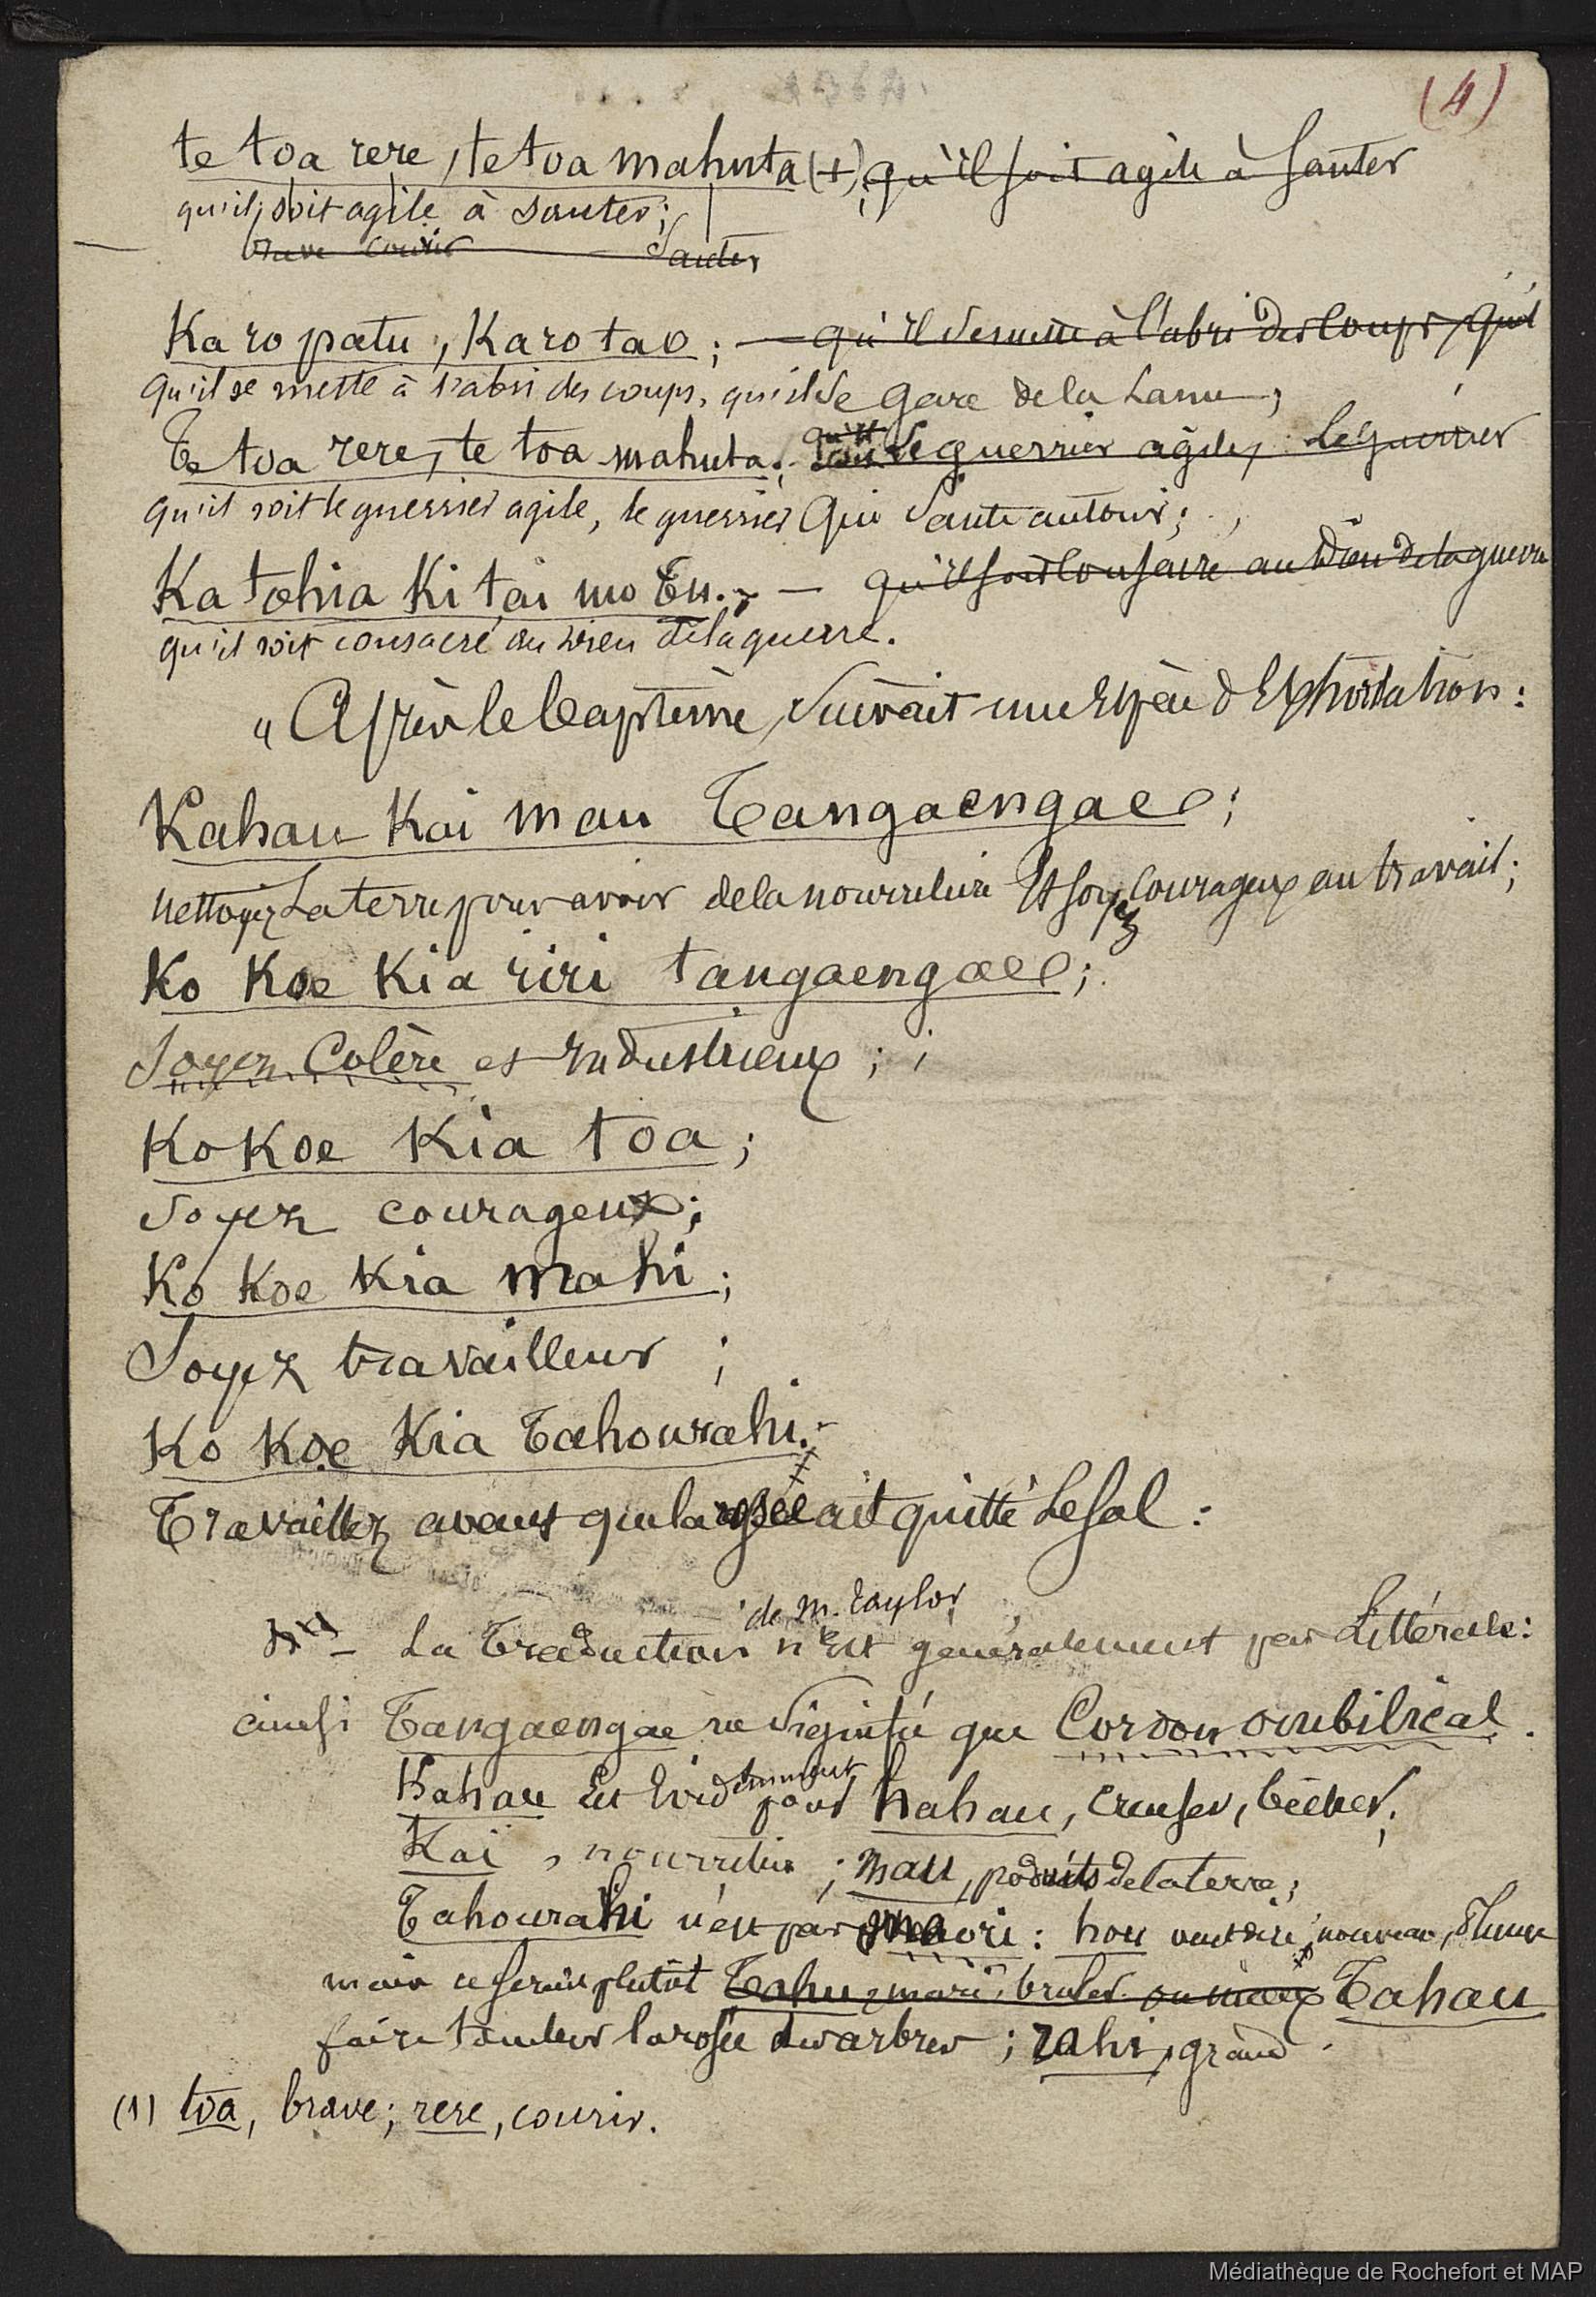 (4)
te toa rere, te toa mahuta (+), qu'il soit agile à sauter
qu'il soit agile à sauter;
brave courir sauter
Karo patu, Karo tao; — qu'il se mette à l'abri des coups, qu'il
qu'il se mette à l'abri des coups, qu'il se gare de la lance;
Te toa rere, te toa mahuta; qu'il soit le guerrier agile, le guerrier
qu'il soit le guerrier agile, le guerrier qui saute autour;
Ka tohia Ki tai mo Tu. — qu'il soit consacré au Dieu de la guerre
qu'il soit consacré au Dieu de la guerre.
" Après le Baptême, suivait une Espèce d'Exhortation:
Kahau Kai mau Tangaengae;
nettoyez la terre pour avoir de la nourriture Et soyez courageux au travail;
Ko Koe Kia riri tangaengae;
Soyez Colère et industrieux;
Ko Koe Kia toa;
Soyez courageux;
Ko Koe Kia mahi;
Soyez travailleur;
Ko Koe Kia Tahourahi.
Travaillez avant que la rosée ait quitté le sol:
de M. Taylor
La Traduction n'Est généralement pas Littérale:
ainsi Tangaengae ne signifie que Cordon ombilical.
Kahau Est Evidemment pour hahau, creuser, bêcher;
Kaï, nourriture; mau, produits de la terre;
Tahourahi n'est pas maori: hou veut dire nouveau, plume
mais ce serait plutôt Tahu, mari, bruler ou mieux Tahau
faire tomber la rosée des arbres; rahi, grand.
(1) toa, brave; rere, courir.
Médiathèque de Rochefort et MAP